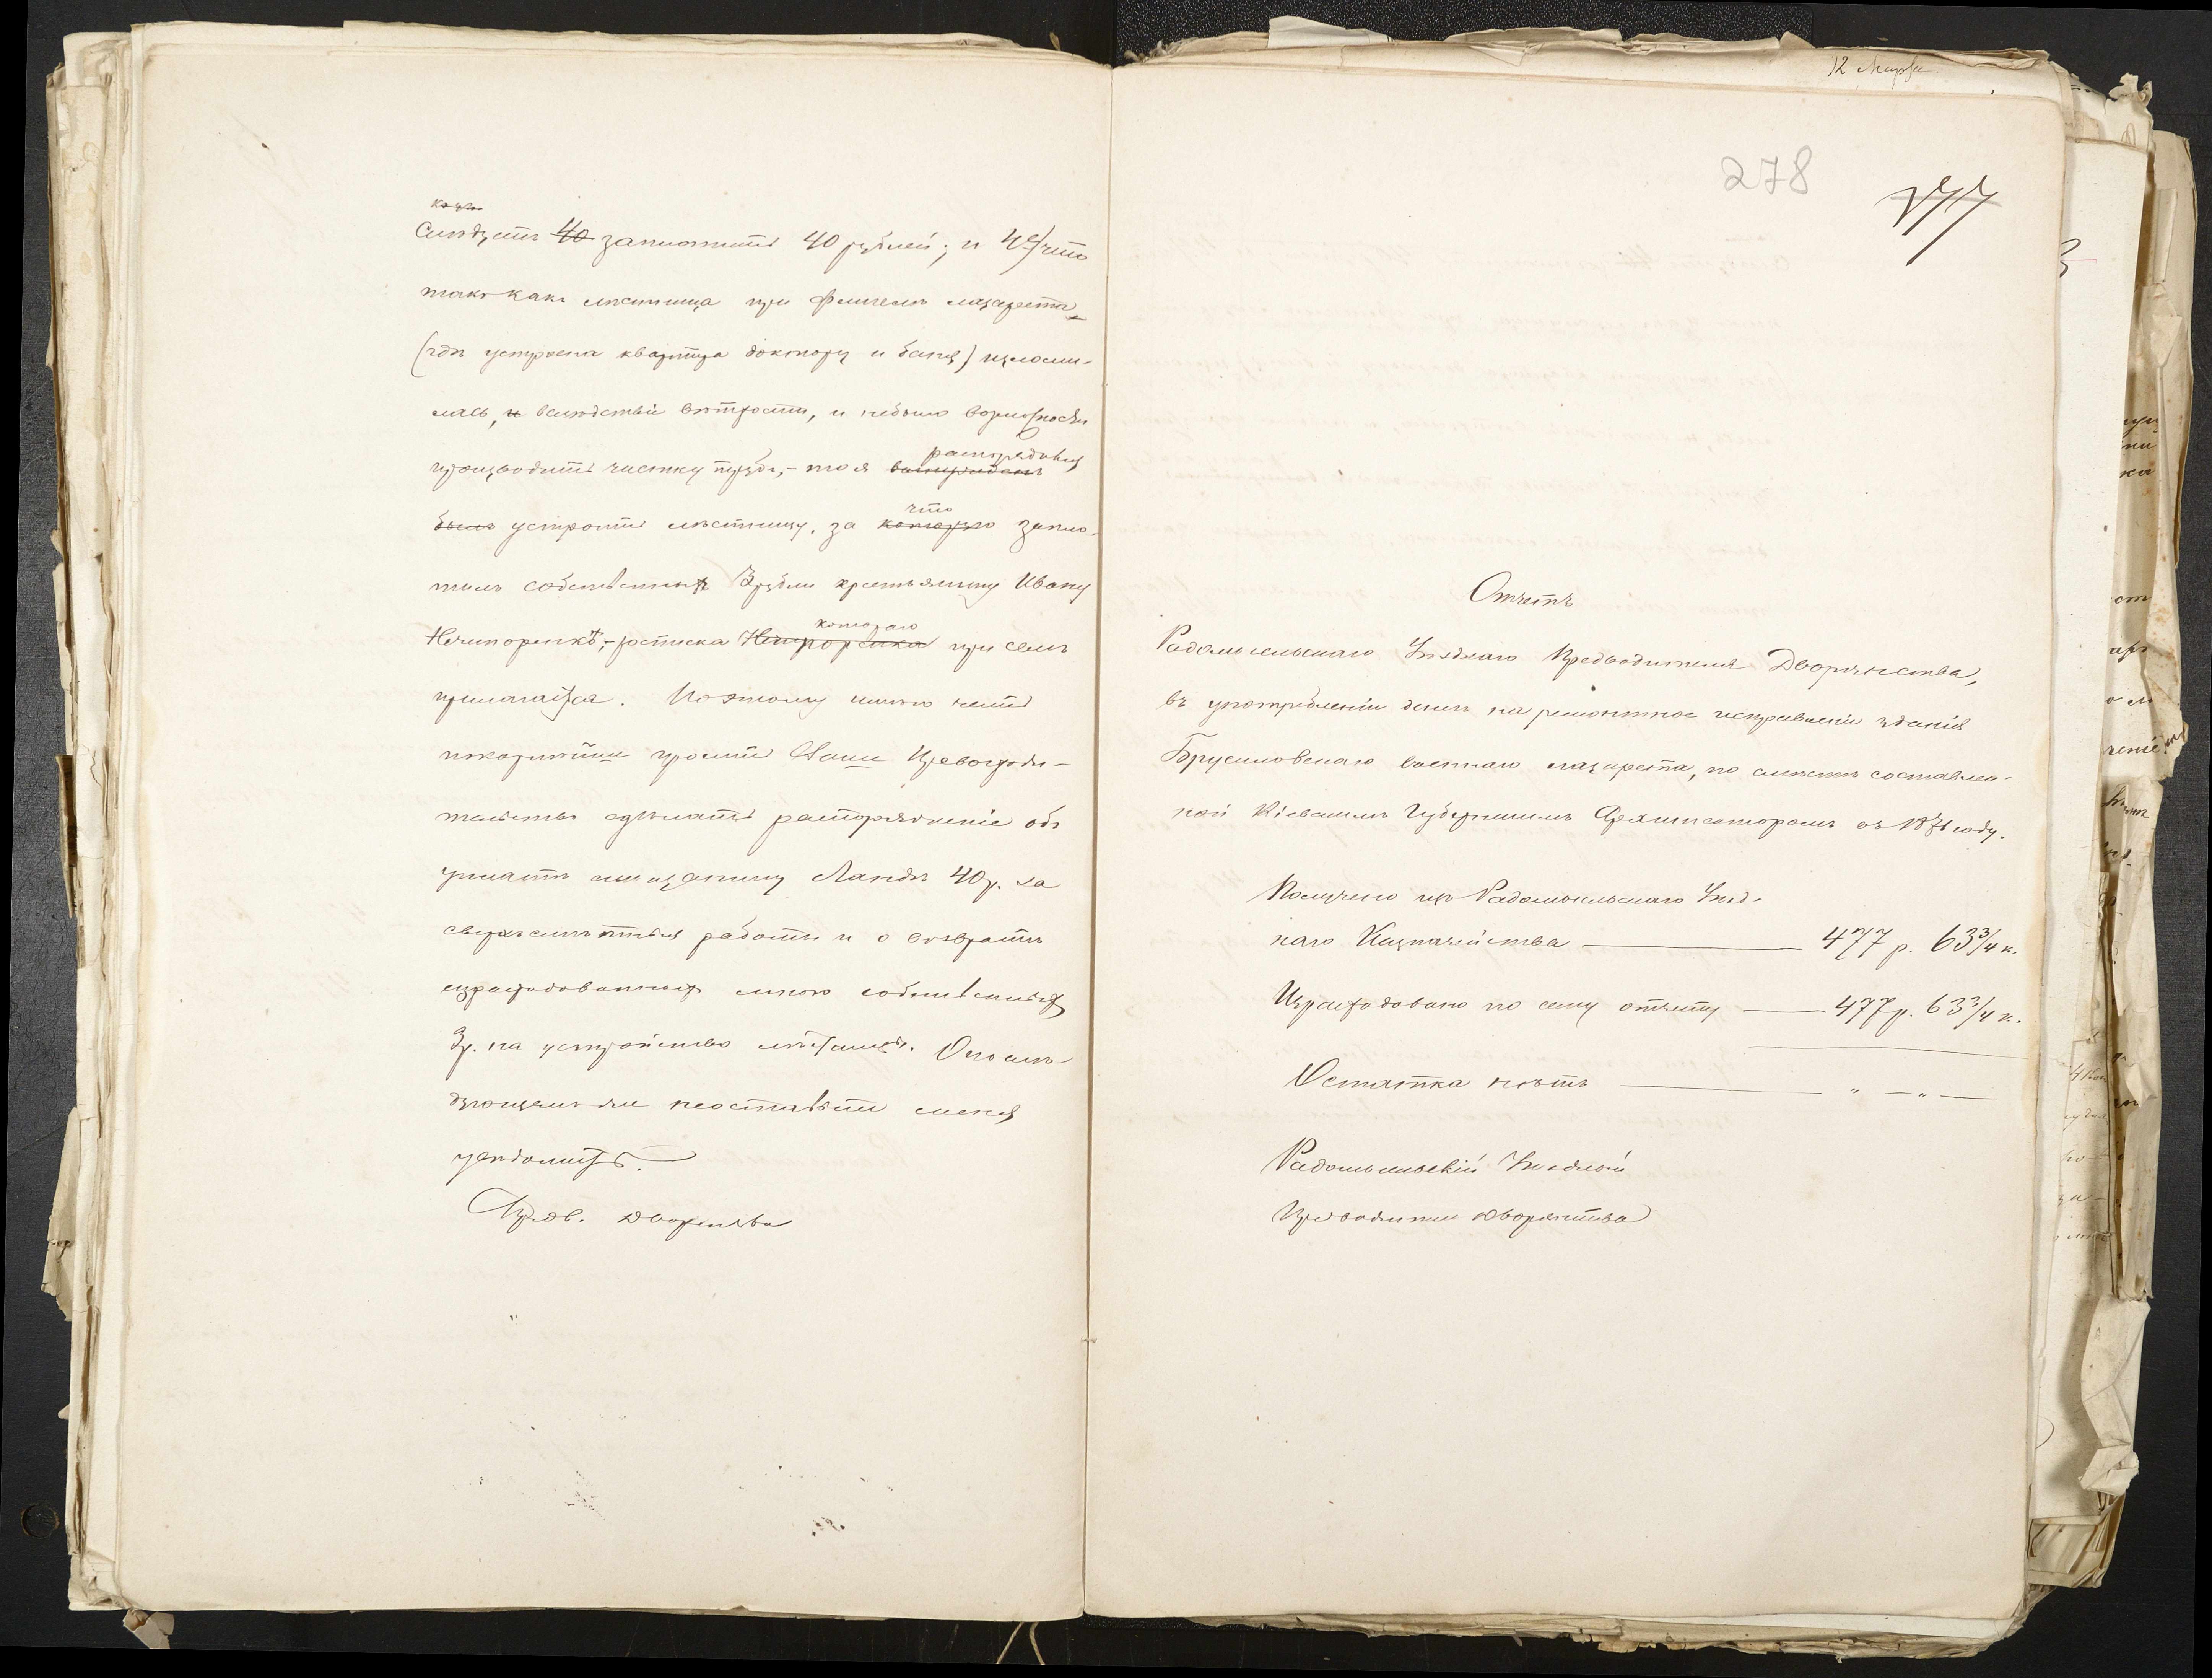 слѣдуетъ 40 заплатить 40 рублей; и 4е/ что
такъ какъ лѣстница при флигелѣ лазарета,
(гдѣ устроена квартира доктору и баня) изломи-
лась, и вслѣдствіе ветхости, и небыло возможности
распорядився
производить чистку трубъ,- то я
что
было устроить лѣстницу, за которую запла-
тилъ собственныхъ 3 рубли крестьянину Ивану
котораго
Нечипоренкѣ,- росписка Нечипоренка при семъ
прилагается. Поэтому имѣю честь
покорнѣйше просить Ваше Превосходи-
тельство сдѣлать распоряженіе объ
уплатѣ мѣщанину Ландѣ 40 р. за
сверхсмѣтныя работы и о возвратѣ
израсходованныхъ мною собственныхъ
3 р. на устройство лѣстницы. О послѣ-
дующемъ же неоставьте меня
увѣдомить.
Предв. Дворянства
12 Марта
278
277
Отчетъ
Радомысльскаго Уѣзднаго Предводителя Дворянства,
въ употребленіи денегъ на ремонтное исправленіе зданія
Брусиловскаго военнаго лазарета, по смѣтѣ составлен-
ной Кіевскимъ Губернскимъ Архитекторомъ въ 1871 году.
Получено изъ Радомысльскаго Уѣзд-
наго Казначейства — 477 р. 63 3/4 к.
Израсходовано по сему отчету — 477 р. 63 3/4 к.
Остатка нѣтъ — " — " —
Радомысльскій Уѣздный
Предводитель Дворянства